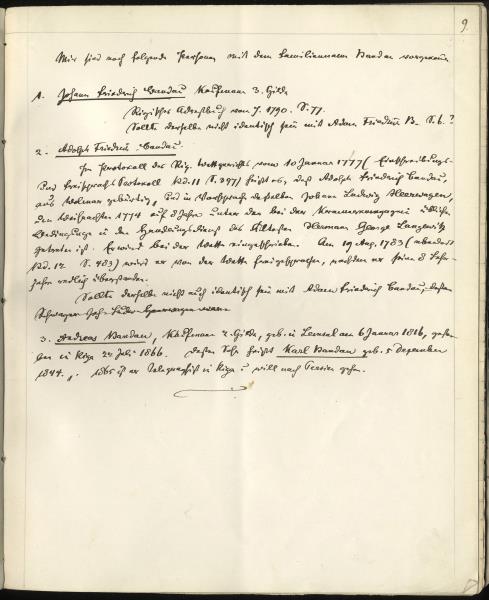 9.
Mir sind noch folgende Personen mit dem Familiennamen Bandau vorgekommen
1. Johann Friedrich Bandau Kaufmann 3. Gilde
Rigisches Adreßbuch von J. 1790. S. 77.
Sollte derselbe nicht identisch sein mit Adam Friedrich B. S. 6.?
2. Adolph Friedrich Bandau.
Im Protocoll des Rig. Wettgerichts vom 10 Januar 1777 (Einschreibungs-
und Freisprechs Protocoll Bd. 11 S. 397) heißt es, daß Adolph Friedrich Bandau,
aus Wolmar gebürtig, und in Vorsprach desselben Johann Ludwig
den Weihnachten 1774 auf 8 Jahre unter den bei der Kramercompagnie üblichen
Bedingungen in den Handlungsdienst des Ältesten Herman George Langewitz
getreten ist. Er wird bei der Wette eingeschrieben. Am 19 Aug. 1783 (ebendort
Bd. 12 S. 483) wird er von der Wette freigesprochen, nachdem er seine 8 Lehr-
jahre redlich überstanden.
Sollte derselbe nicht auch identisch sein mit Adam Friedrich Bandau, dessen
Schwager Joh.
3. Andreas Bandau, Kaufmann 2. Gilde, geb. in Lemsal am 6 Januar 1816, gestor-
ben in Riga 24 Juli 1866. Dessen Sohn heißt Karl Bandau geb. 5 Dezember
1844. 1865 ist er Telegraphist in Riga u will nach Persien gehen.